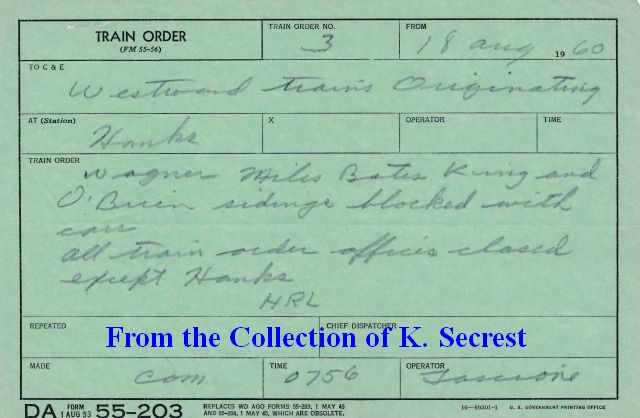 TRAIN ORDER
(FM 55-56)
TRAIN ORDER NO.
3
FROM
18 Aug 1960
TO C & E
Westward trains Originating
AT (Station)
Hanks
X
OPERATOR
TIME
TRAIN ORDER
Wagner Miles Bates King and
O'Brien sidings blocked with
cars
all train order offices closed
except Hanks
HRL
REPEATED
CHIEF DISPATCHER
From the Collection of K. Secrest
MADE
Com
TIME
0756
OPERATOR
DA FORM 1 AUG 53 55-203
REPLACES WD AGO FORMS 55-203, 1 MAY 45
AND 55-204, 1 MAY 45, WHICH ARE OBSOLETE.
16—69301-1 U. S. GOVERNMENT PRINTING OFFICE